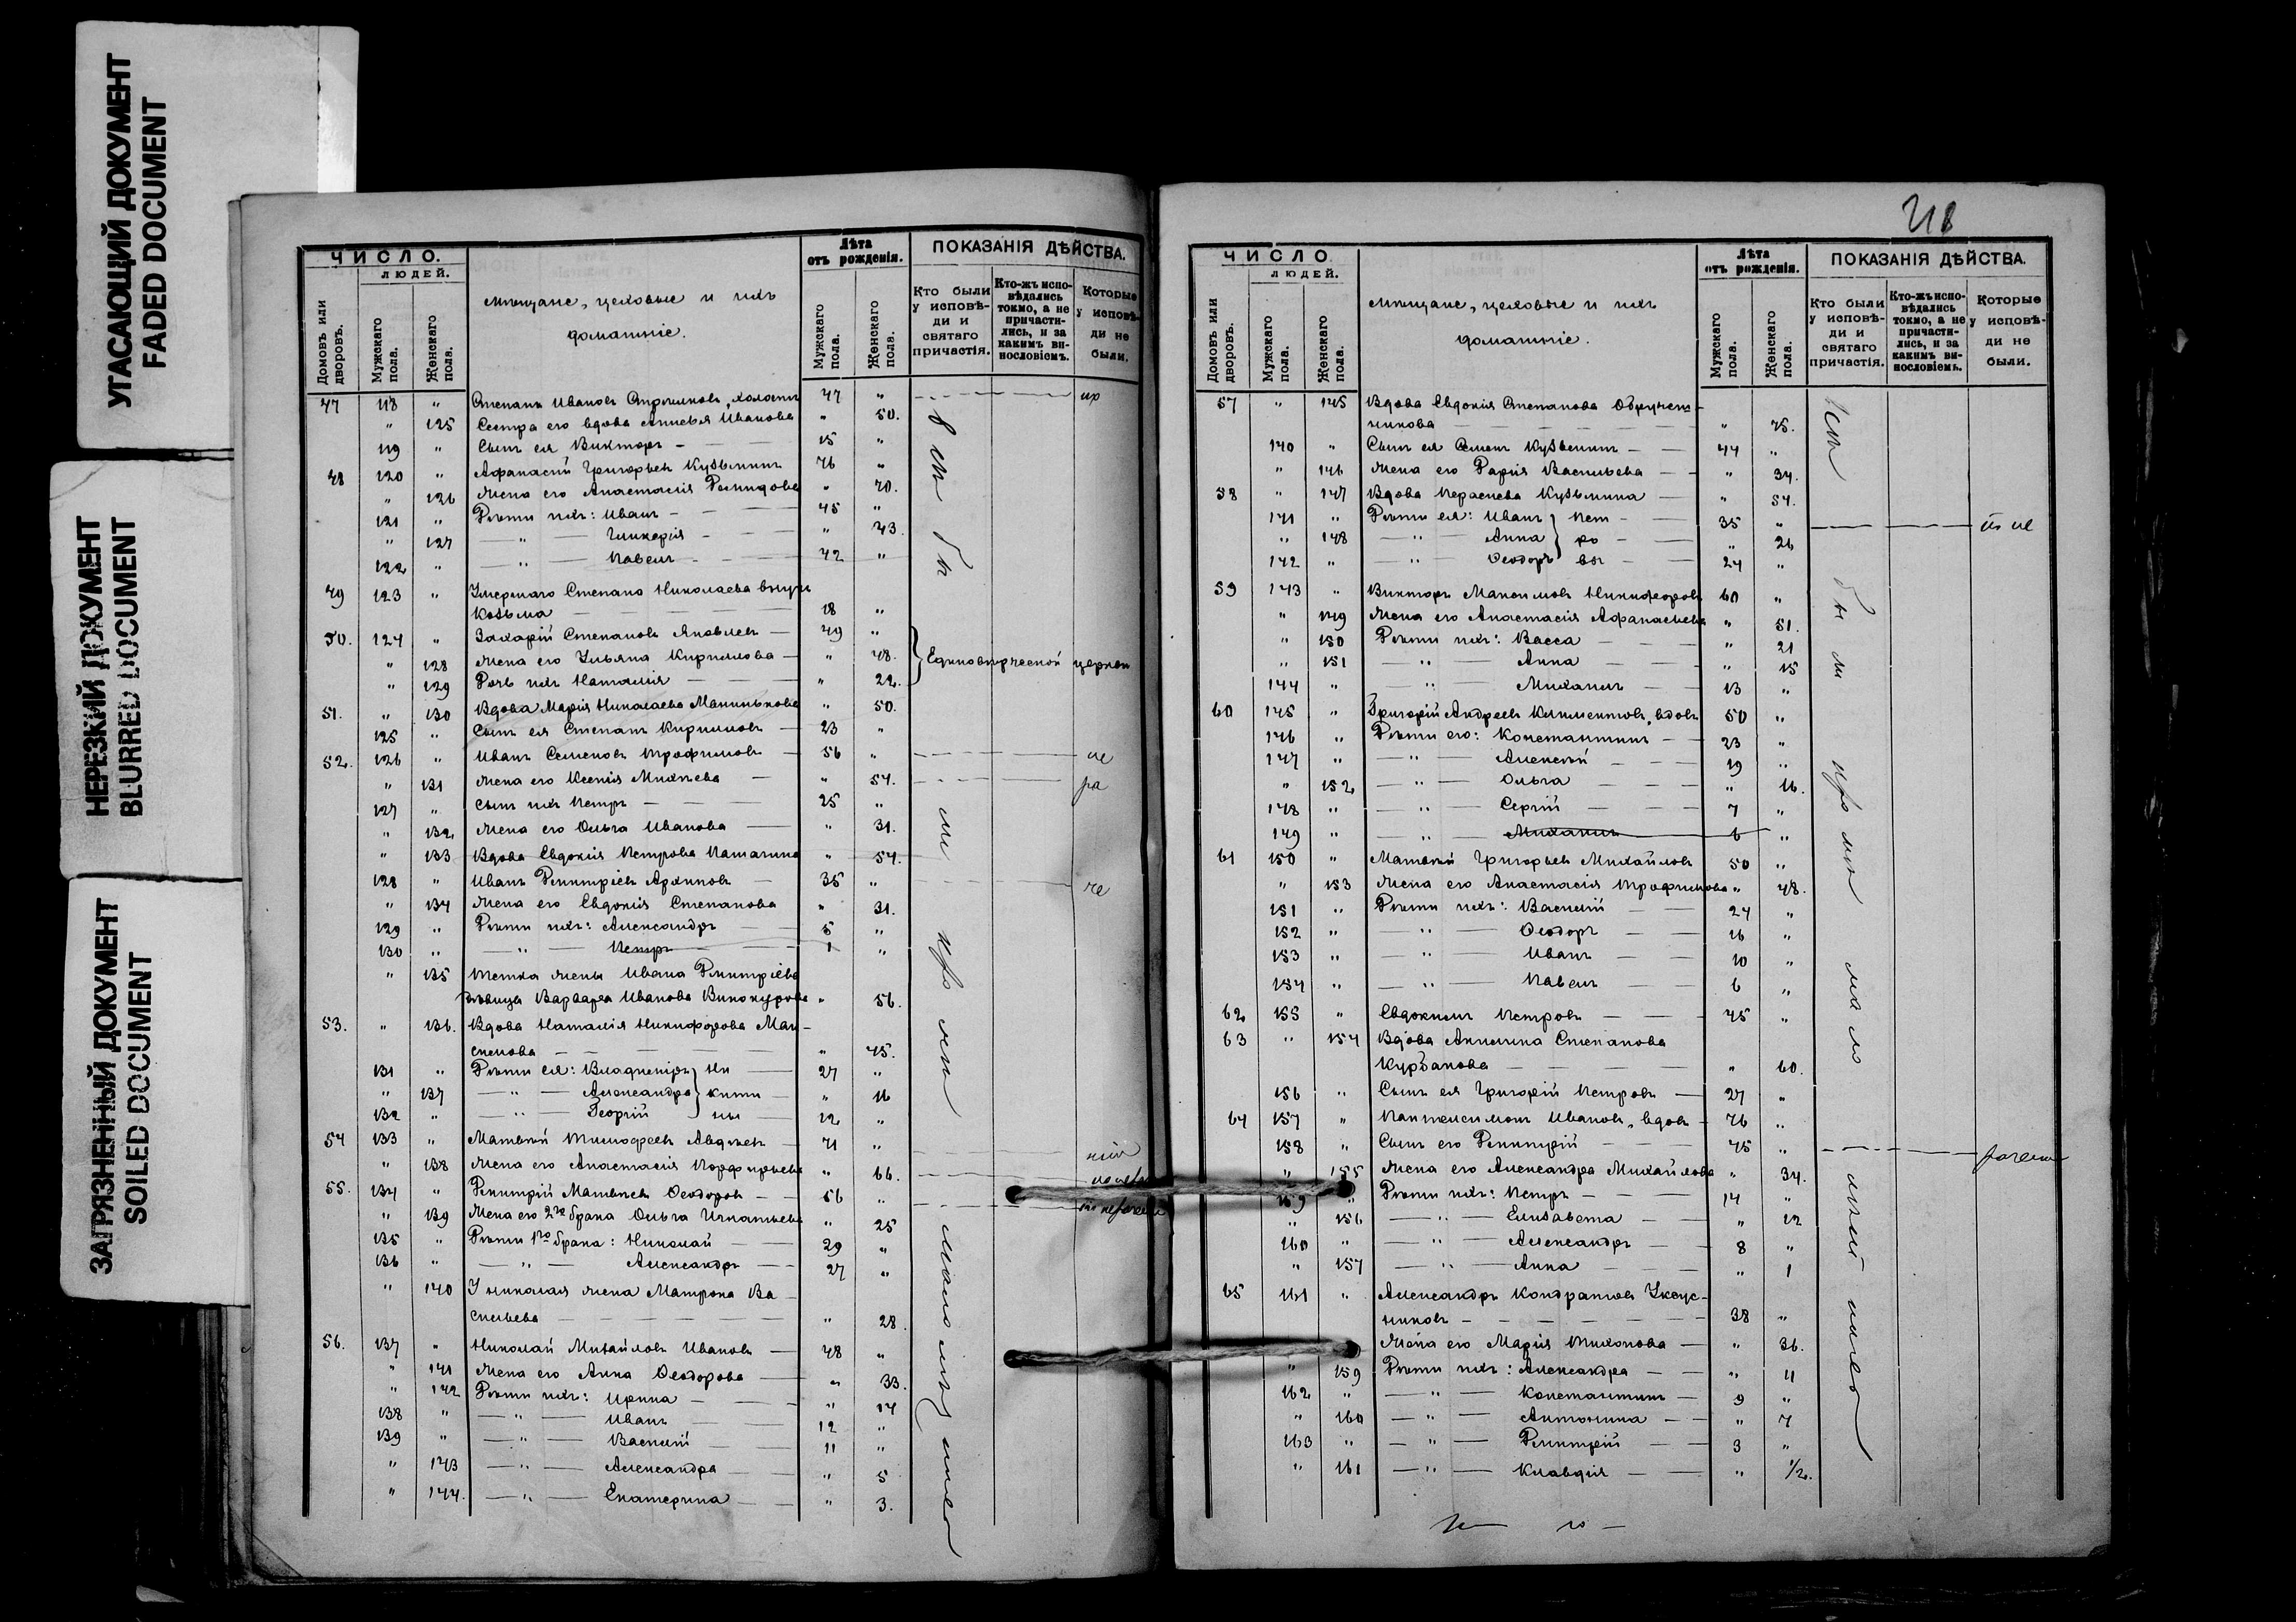 УГАСАЮЩИЙ ДОКУМЕНТ
FADED DOCUMENT
НЕРЕЗКИЙ ДОКУМЕНТ
BLURRED DOCUMENT
ЗАГРЯЗНЕННЫЙ ДОКУМЕНТ
SOILED DOCUMENT
ЧИСЛО.
ЛЮДЕЙ.
Домовъ или дворовъ.
Мужскаго пола.
Женскаго пола.
Мѣщане, цеховые и ихъ
домашніе.
Лѣта
отъ рожденія.
Мужскаго пола.
Женскаго пола.
ПОКАЗАНІЯ ДѢЙСТВА.
Кто были у исповѣди и святаго причастія.
Кто-жъ исповѣдались токмо, а не причастились, и за какимъ винословіемъ.
Которые у исповѣди не были.
47 118 " Степанъ Ивановъ холостъ 47 "
" 125 Сестра его вдова Ивановa " 50.
119 " Сынъ ея Викторъ 15 "
48 120 " Афанасій Григорьевъ Кузьминъ 76 "
" 126 Жена его Анастасія " 70.
121 " Дѣти ихъ: Иванъ 45 "
" 127 — " — Гликерія " 43
122 " — " — Павелъ 42 "
49 123 " Умершаго Степана Николаева внукъ
Козьма 18 "
50. 124 " Захарій Степановъ Яковлевъ 49 "
" 128 Жена его Ульяна Кириллова " 48. Единовѣрческой церкви
" 129 Дочь ихъ Наталія " 22.
51. " 130 Вдова Марія Николаева " 50.
125 " Сынъ ея Степанъ Кирилловъ 23 "
52. 126 " Иванъ Семеновъ Трофимовъ 56 "
" 131 Жена его Ксенія Михѣева " 54.
127 " Сынъ ихъ Петръ 25 "
" 132 Жена его Ольга Иванова " 31.
" 133 Вдова Евдокія Петрова " 54.
128 " Иванъ Димитріевъ Архиповъ 35 "
" 134 Жена его Евдокія Степанова " 31.
129 " Дѣти ихъ: Александръ 5 "
130 " — " — Петръ 1 "
" 135 Тетка жены Ивана Димитріева
дѣвица Варвара Иванова Винокурова " 56.
53. " 136. Вдова Наталія Никифорова Мак-
симова " 45.
131 " Дѣти ея: Владиміръ } Ни 27 "
" 137 — " — Александра } кити " 16
132 " — " — Георгій } ны 12 "
54 133 " Матвѣй Тимофеевъ Авдѣевъ 71 "
" 138 Жена его Анастасія Порфирьева " 66.
55. 134 " Димитрій Матвѣевъ Ѳеодоровъ 56 "
" 139 Жена его 2го брака Ольга Игнатьева " 25
135 " Дѣти 1го брака: Николай 29 "
136 " — " — Александръ 27 "
" 140 У Николая жена Матрона Ва-
сильева " 28.
56. 137 " Николай Михайловъ Ивановъ 48 "
" 141 Жена его Анна Ѳеодорова " 33.
" 142 Дѣти ихъ: Ирина " 14
138 " — " — Иванъ 12 "
139 " — " — Василій 11 "
" 143 — " — Александра " 5
" 144. — " — Екатерина " 3.
ЧИСЛО.
ЛЮДЕЙ.
Домовъ или дворовъ.
Мужскаго пола.
Женскаго пола.
Мѣщане, цеховые и ихъ
домашніе.
Лѣта
отъ рожденія.
Мужскаго пола.
Женскаго пола.
ПОКАЗАНІЯ ДѢЙСТВА.
Кто были у исповѣди и святаго причастія.
Кто-жъ исповѣдались токмо, а не причастились, и за какимъ винословіемъ.
Которые у исповѣди не были.
57 " 145 Вдова Евдокія Степанова
никова " 75.
140 " Сынъ ея Кузьминъ 44 "
" 146 Жена его Дарія Васильева " 34.
58 " 147 Вдова Кузьмина " 54.
141 " Дѣти ея: Иванъ } Пет 35 "
" 148 — " — Анна } ро " 26
142 " — " — Ѳеодоръ } вы 24 "
59 143 " Викторъ Максимовъ Никифоровъ 60 "
" 149 Жена его Анастасія Афанасьева " 51.
" 150 Дѣти ихъ: Васса " 21
" 151 — " — Анна " 15
144 " — " — Михаилъ 13 "
60 145 " Григорій Андреевъ Климентовъ, вдовъ 50 "
146 " Дѣти его: Константинъ 23 "
147 " — " — Алексѣй 19 "
" 152 — " — Ольга " 16.
148 " — " — Сергій 7 "
149 " — " — Михаилъ 6 "
61 150 " Матвѣй Григорьевъ Михайловъ 50 "
" 153 Жена его Анастасія Трофимова " 48.
151 " Дѣти ихъ: Василій 24 "
152 " — " — Ѳеодоръ 16 "
153 " — " — Иванъ 10 "
154 " — " — Павелъ 6 "
62 155 " Евдокимъ Петровъ 45 "
63 " 154 Вдова Акилина Степанова
Курбанова " 60.
156 " Сынъ ея Григорій Петровъ 27 "
64 157 " Пантелеимонъ Ивановъ, вдовъ 76 "
158 " Сынъ его Димитрій 45 "
" 155 Жена его Александра Михайлова " 34.
159 " Дѣти ихъ: Петръ 14 "
" 156 — " — Елизавета " 12
160 " — " — Александръ 8 "
" 157 — " — Анна " 1
65 161 " Александръ Кондратовъ Уксус-
никовъ 38 "
Жена его Марія Тихонова " 36.
" 159 Дѣти ихъ: Александра " 11
162 " — " — Константинъ 9 "
" 160 — " — Антонина " 7
163 " — " — Димитрій 3 "
" 161 — " — Клавдія " 1/2.